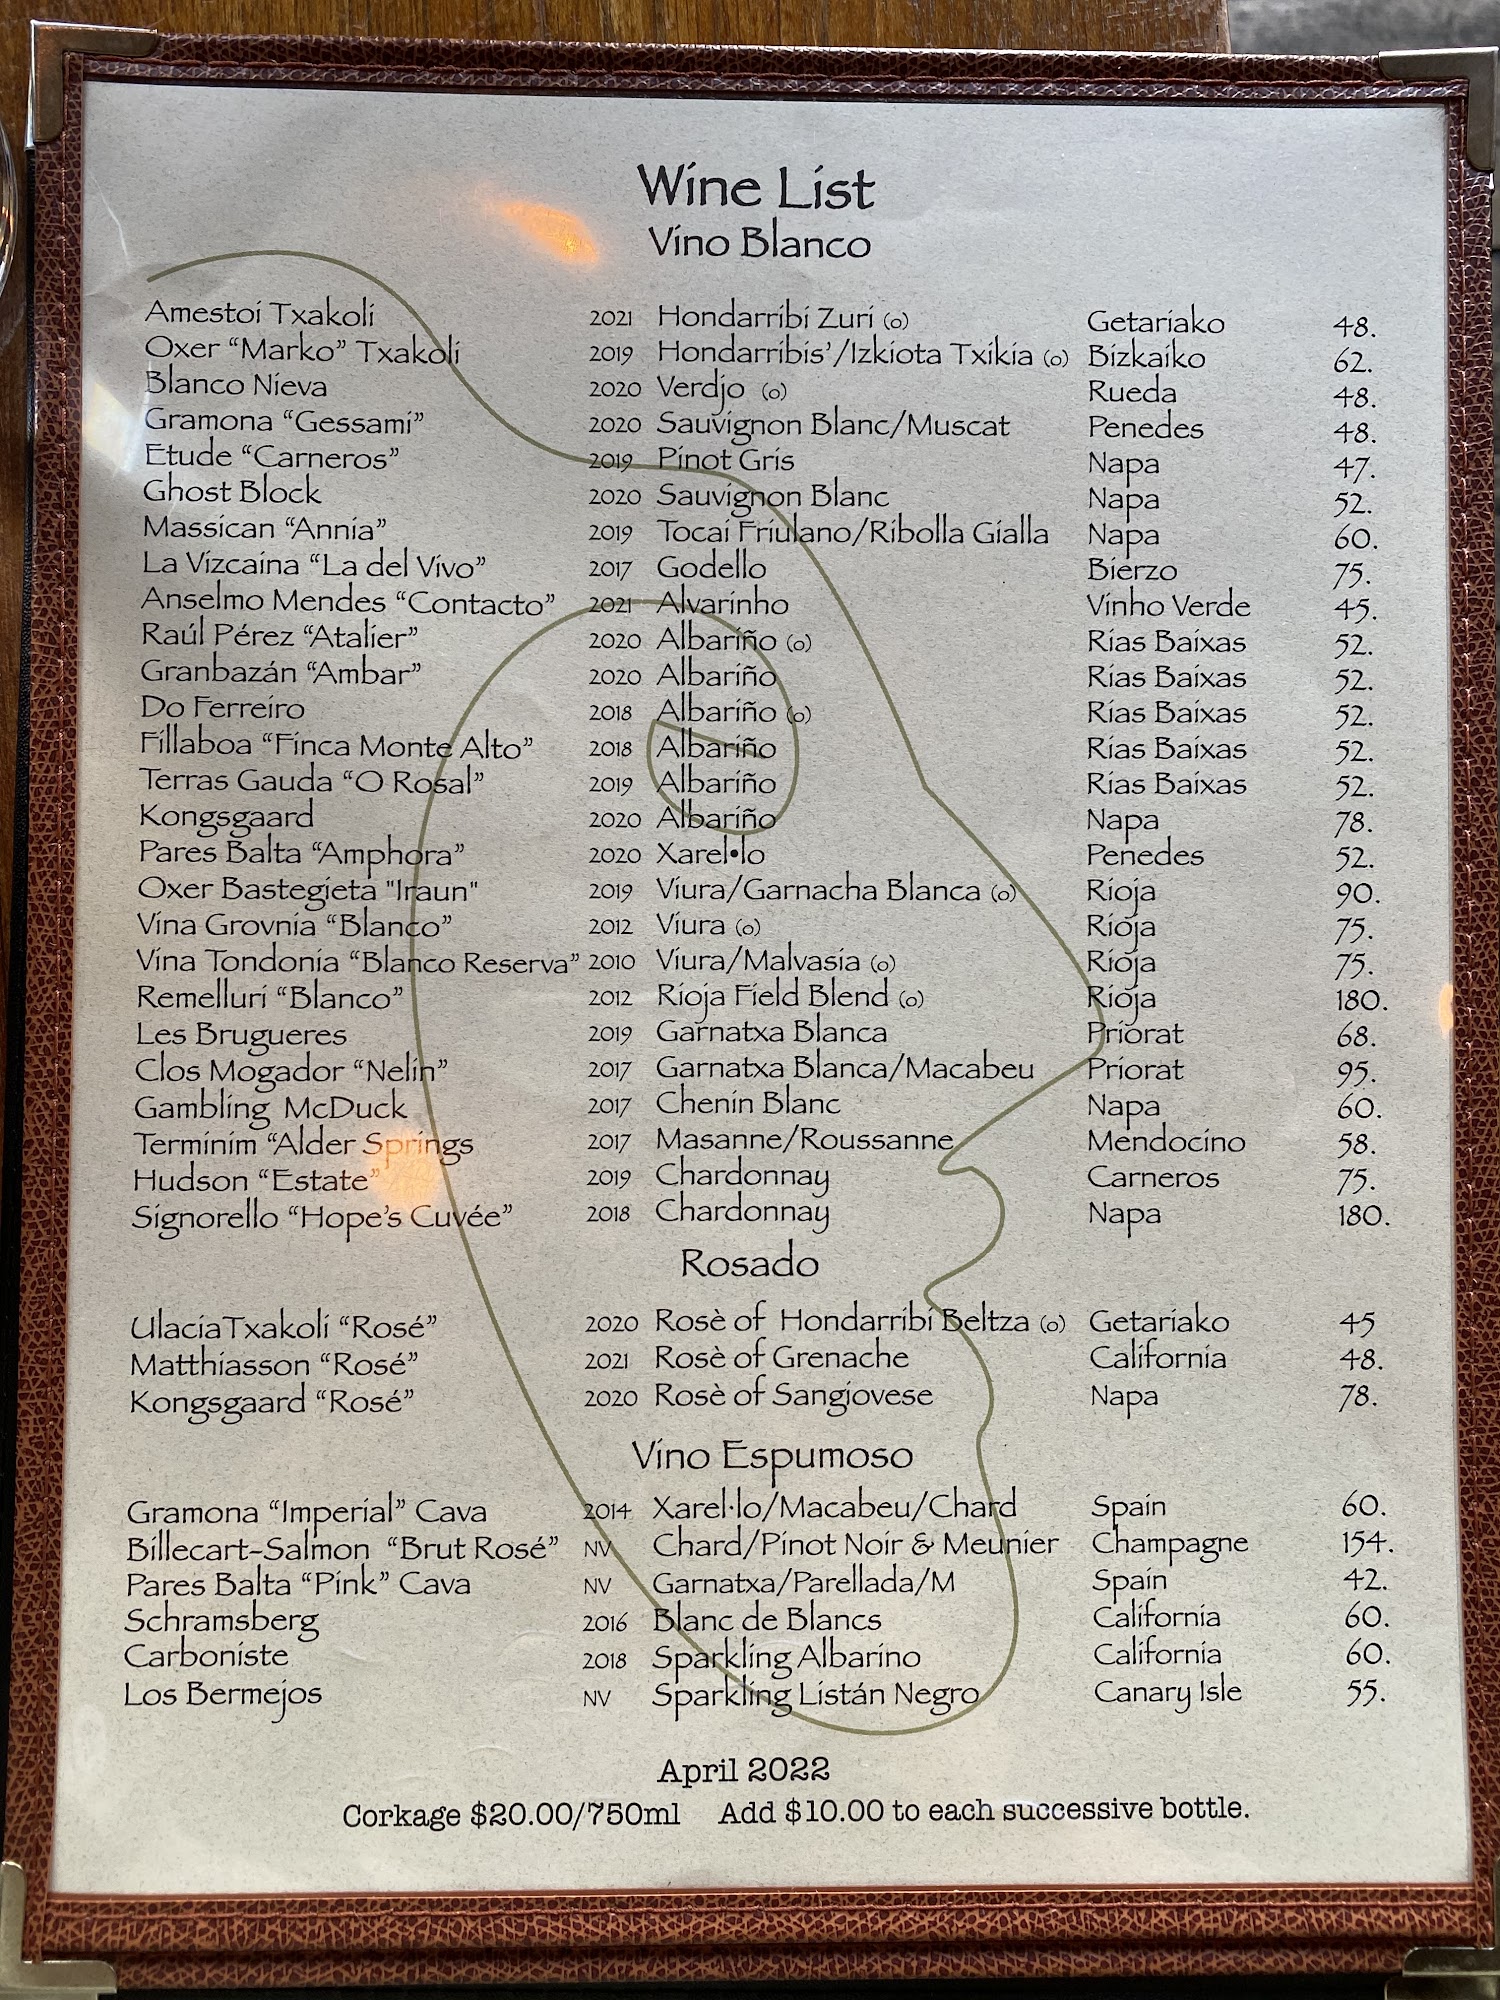 Wine List
Vino Blanco
Amestoi Txakoli 2021 Hondarribi Zuri (o) Getariako 48.
Oxer “Marko” Txakoli 2019 Hondarribis’/Izkiota Txikia (o) Bizkaiko 62.
Blanco Nieva 2020 Verdjo (o) Rueda 48.
Gramona “Gessami” 2020 Sauvignon Blanc/Muscat Penedes 48.
Etude “Carneros” 2019 Pinot Gris Napa 47.
Ghost Block 2020 Sauvignon Blanc Napa 52.
Massican “Annia” 2019 Tocai Friulano/Ribolla Gialla Napa 60.
La Vizcaina “La del Vivo” 2017 Godello Bierzo 75.
Anselmo Mendes “Contacto” 2021 Alvarinho Vinho Verde 45.
Raúl Pérez “Atalier” 2020 Albariño (o) Rias Baixas 52.
Granbazán “Ambar” 2020 Albariño Rias Baixas 52.
Do Ferreiro 2018 Albariño (o) Rias Baixas 52.
Fillaboa “Finca Monte Alto” 2018 Albariño Rias Baixas 52.
Terras Gauda “O Rosal” 2019 Albariño Rias Baixas 52.
Kongsgaard 2020 Albariño Napa 78.
Pares Balta “Amphora” 2020 Xarel•lo Penedes 52.
Oxer Bastegieta "Iraun" 2019 Viura/Garnacha Blanca (o) Rioja 90.
Vina Grovnia “Blanco” 2012 Viura (o) Rioja 75.
Vina Tondonia “Blanco Reserva” 2010 Viura/Malvasia (o) Rioja 75.
Remelluri “Blanco” 2012 Rioja Field Blend (o) Rioja 180.
Les Brugueres 2019 Garnatxa Blanca Priorat 68.
Clos Mogador “Nelin” 2017 Garnatxa Blanca/Macabeu Priorat 95.
Gambling McDuck 2017 Chenin Blanc Napa 60.
Terminim “Alder Springs 2017 Masanne/Roussanne Mendocino 58.
Hudson “Estate” 2019 Chardonnay Carneros 75.
Signorello “Hope’s Cuvée” 2018 Chardonnay Napa 180.
Rosado
UlaciaTxakoli “Rosé” 2020 Rosè of Hondarribi Beltza (o) Getariako 45
Matthiasson “Rosé” 2021 Rosè of Grenache California 48.
Kongsgaard “Rosé” 2020 Rosè of Sangiovese Napa 78.
Vino Espumoso
Gramona “Imperial” Cava 2014 Xarel·lo/Macabeu/Chard Spain 60.
Billecart-Salmon “Brut Rosé” NV Chard/Pinot Noir & Meunier Champagne 154.
Pares Balta “Pink” Cava NV Garnatxa/Parellada/M Spain 42.
Schramsberg 2016 Blanc de Blancs California 60.
Carboniste 2018 Sparkling Albarino California 60.
Los Bermejos NV Sparkling Listán Negro Canary Isle 55.
April 2022
Corkage $20.00/750ml Add $10.00 to each successive bottle.